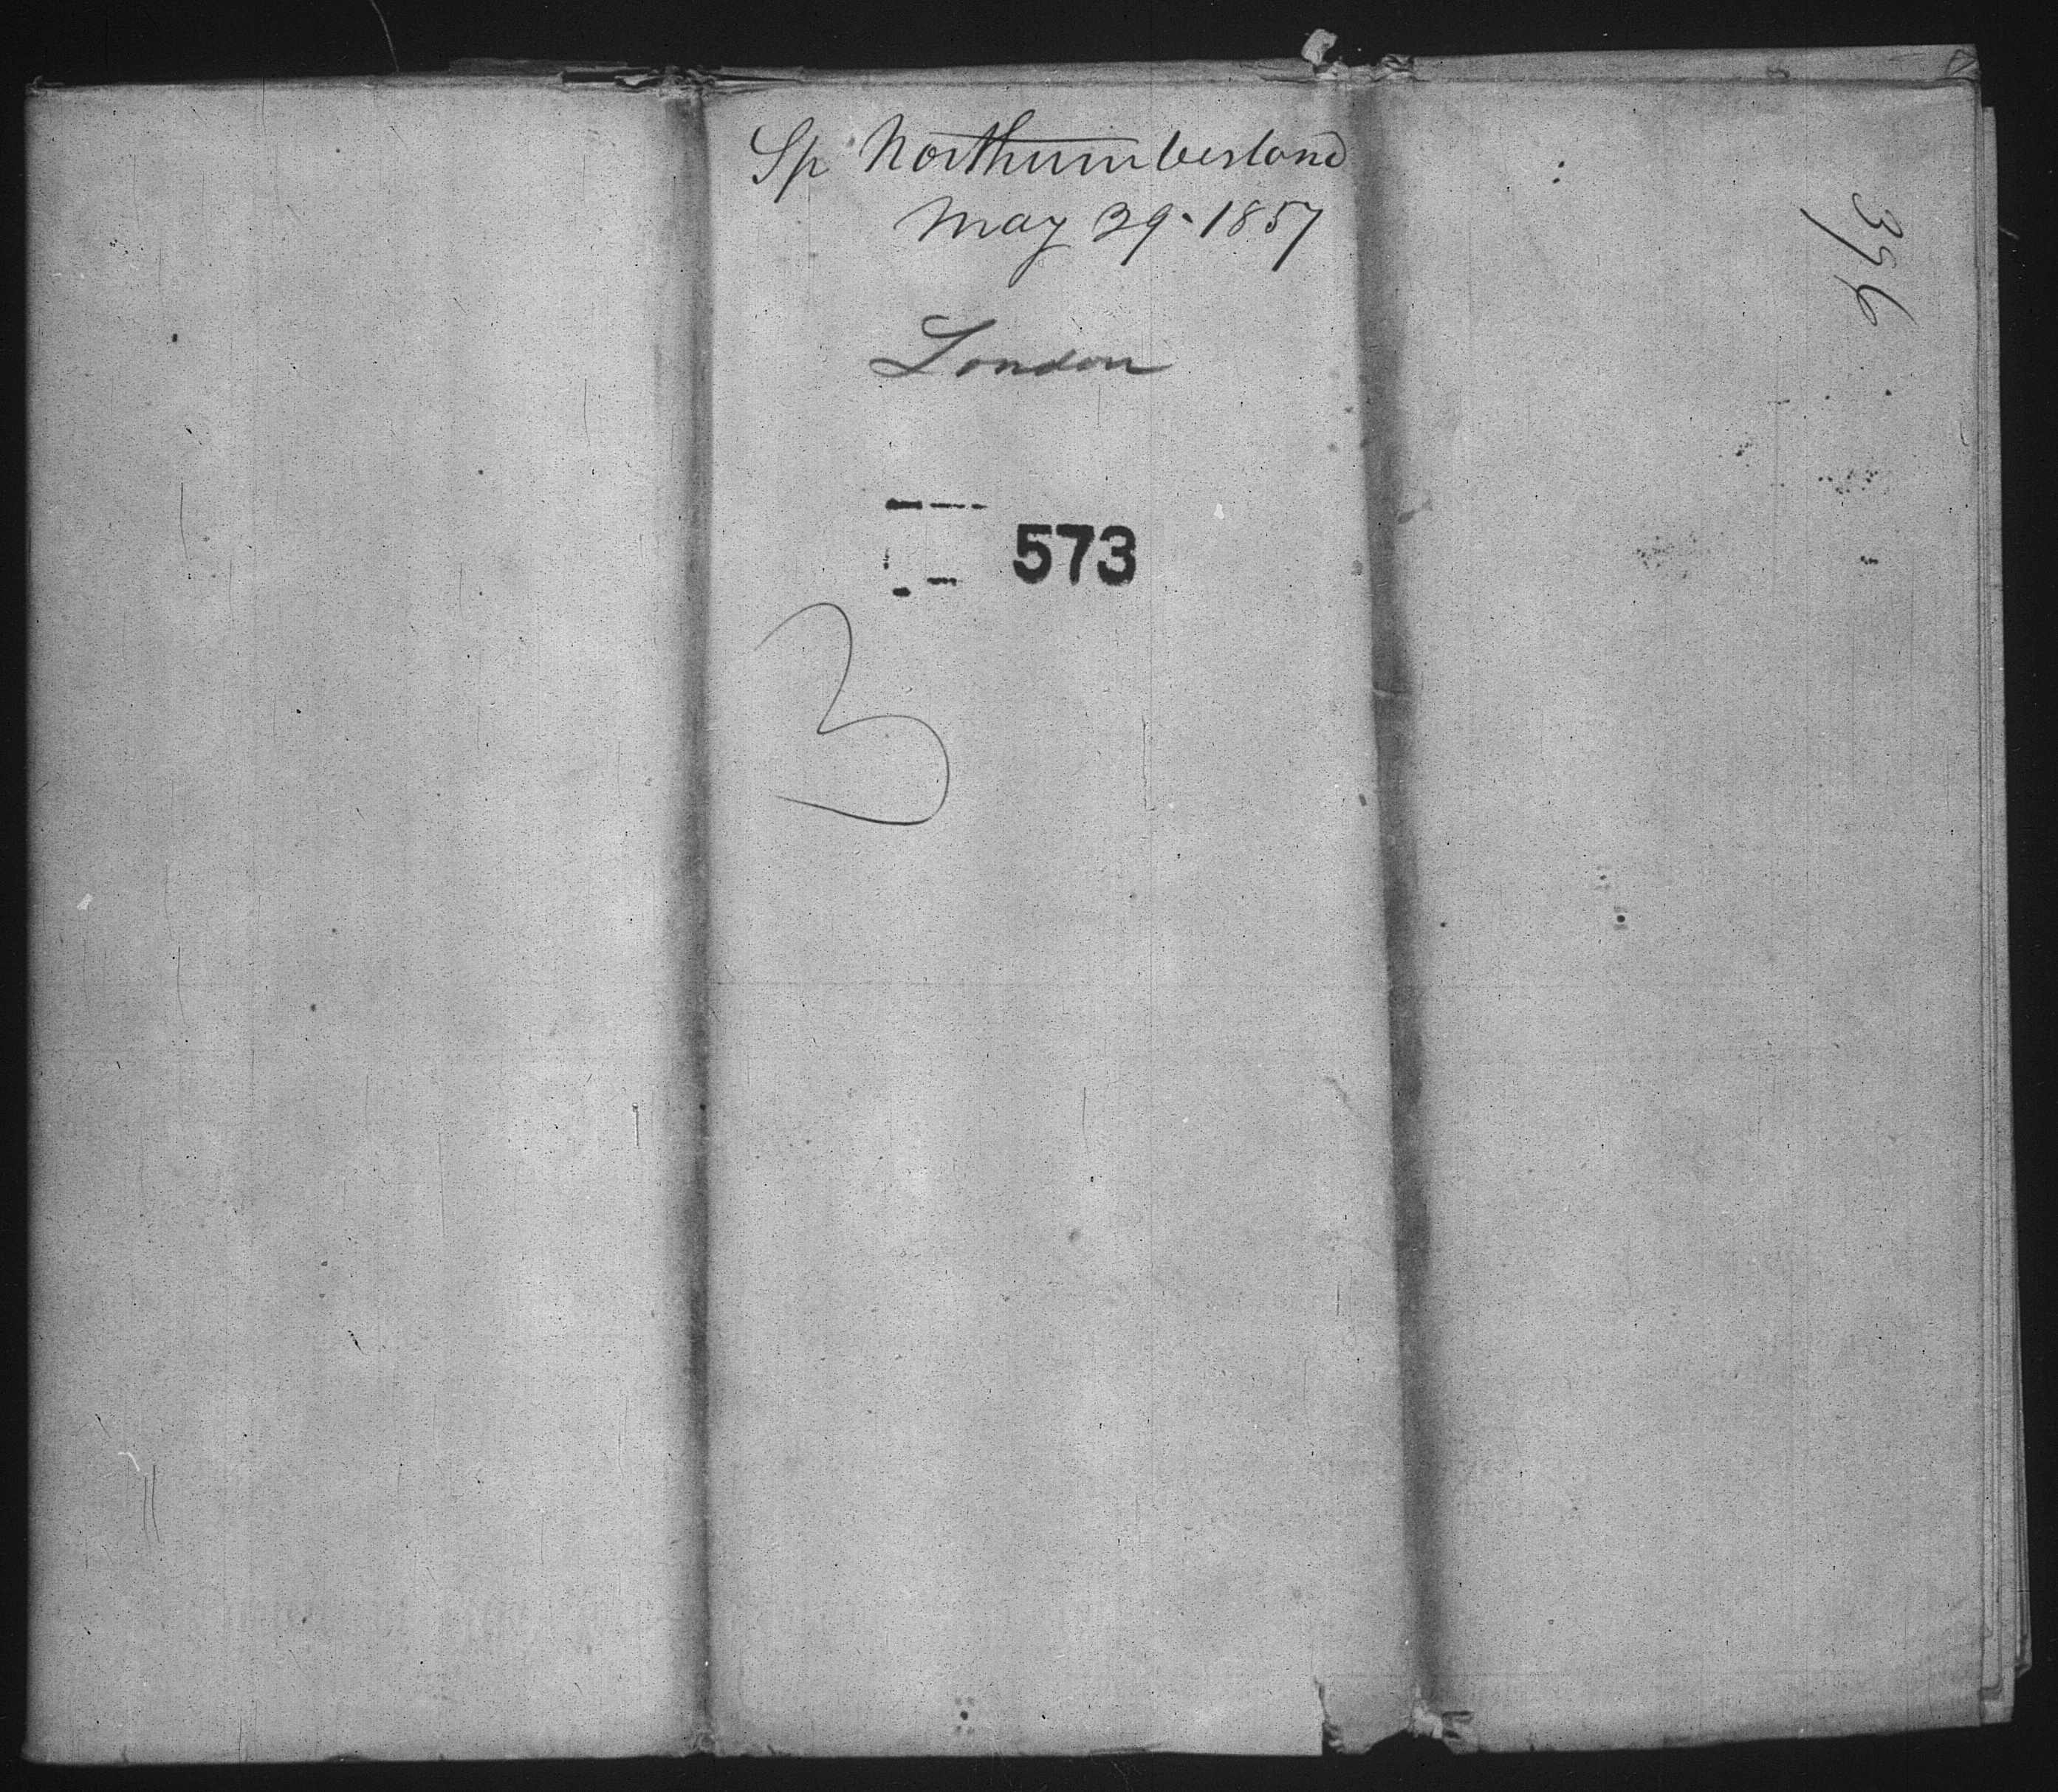 Sp Northumberland
May 29 · 1857
London
573
3
396